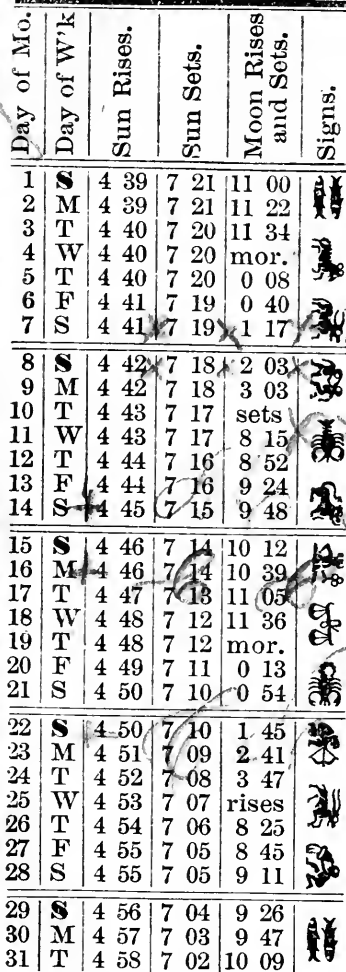 Day of Mo. Day of W'k Sun Rises. Sun Sets. Moon Rises and Sets. Signs.
1 S 4 39 7 21 11 00
2 M 4 39 7 21 11 22
3 T 4 40 7 20 11 34
4 W 4 40 7 20 mor.
5 T 4 40 7 20 0 08
6 F 4 41 7 19 0 40
7 S 4 41 7 19 1 17
8 S 4 42 7 18 2 03
9 M 4 42 7 18 3 03
10 T 4 43 7 17 sets
11 W 4 43 7 17 8 15
12 T 4 44 7 16 8 52
13 F 4 44 7 16 9 24
14 S 4 45 7 15 9 48
15 S 4 46 7 14 10 12
16 M 4 46 7 14 10 39
17 T 4 47 7 13 11 05
18 W 4 48 7 12 11 36
19 T 4 48 7 12 mor.
20 F 4 49 7 11 0 13
21 S 4 50 7 10 0 54
22 S 4 50 7 10 1 45
23 M 4 51 7 09 2 41
24 T 4 52 7 08 3 47
25 W 4 53 7 07 rises
26 T 4 54 7 06 8 25
27 F 4 55 7 05 8 45
28 S 4 55 7 05 9 11
29 S 4 56 7 04 9 26
30 M 4 57 7 03 9 47
31 T 4 58 7 02 10 09